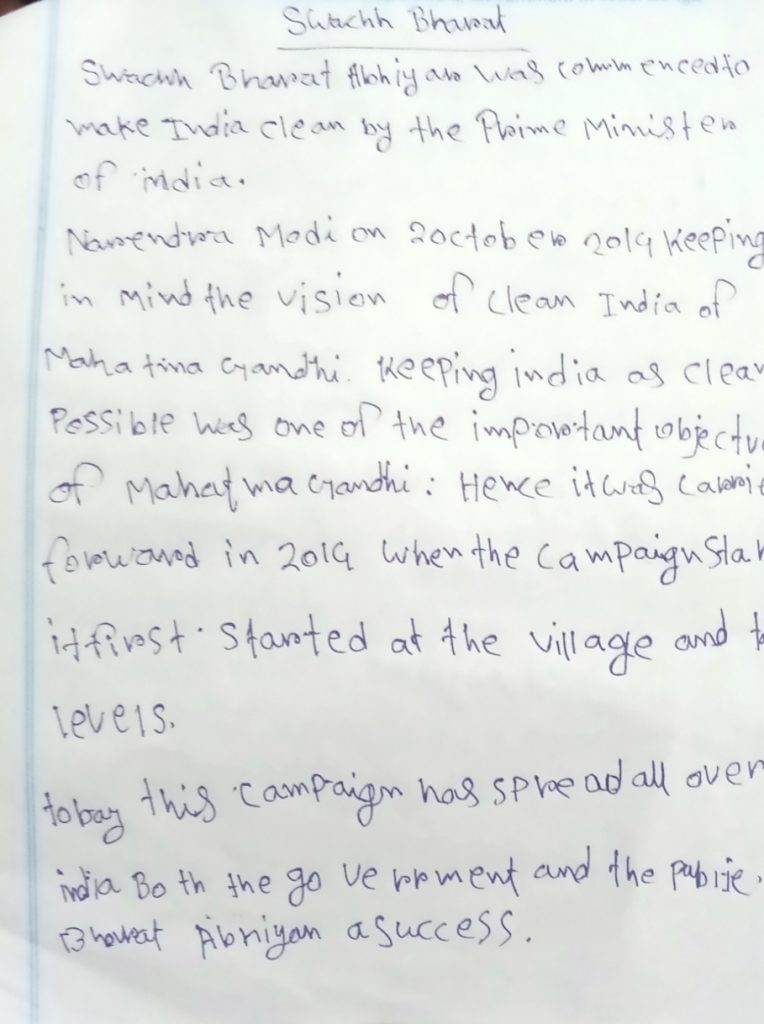 Swachh Bharat
Swachh Bharat Abhiyan was commenced to
make India clean by the Prime Minister
of india.
Narendra Modi on 2 october 2014 keeping
in mind the vision of clean India of
Mahatma Gandhi. keeping india as clean
Possible was one of the important objectv
of Mahatma Gandhi. Hence it was carrie
forward in 2014 when the campaign star
it first. started at the village and to
levels.
today this campaign has spread all over
india Both the government and the public.
Bharat Abhiyan a success.